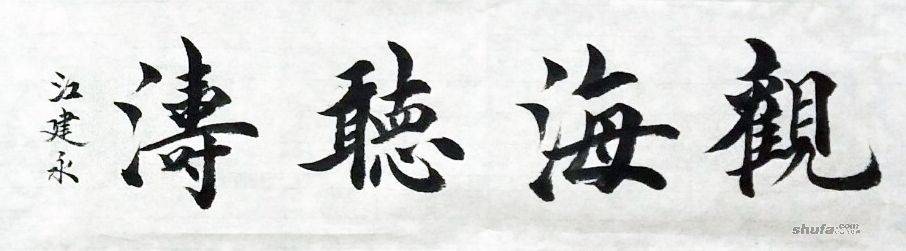 觀海聽濤
江建永
shufa.com